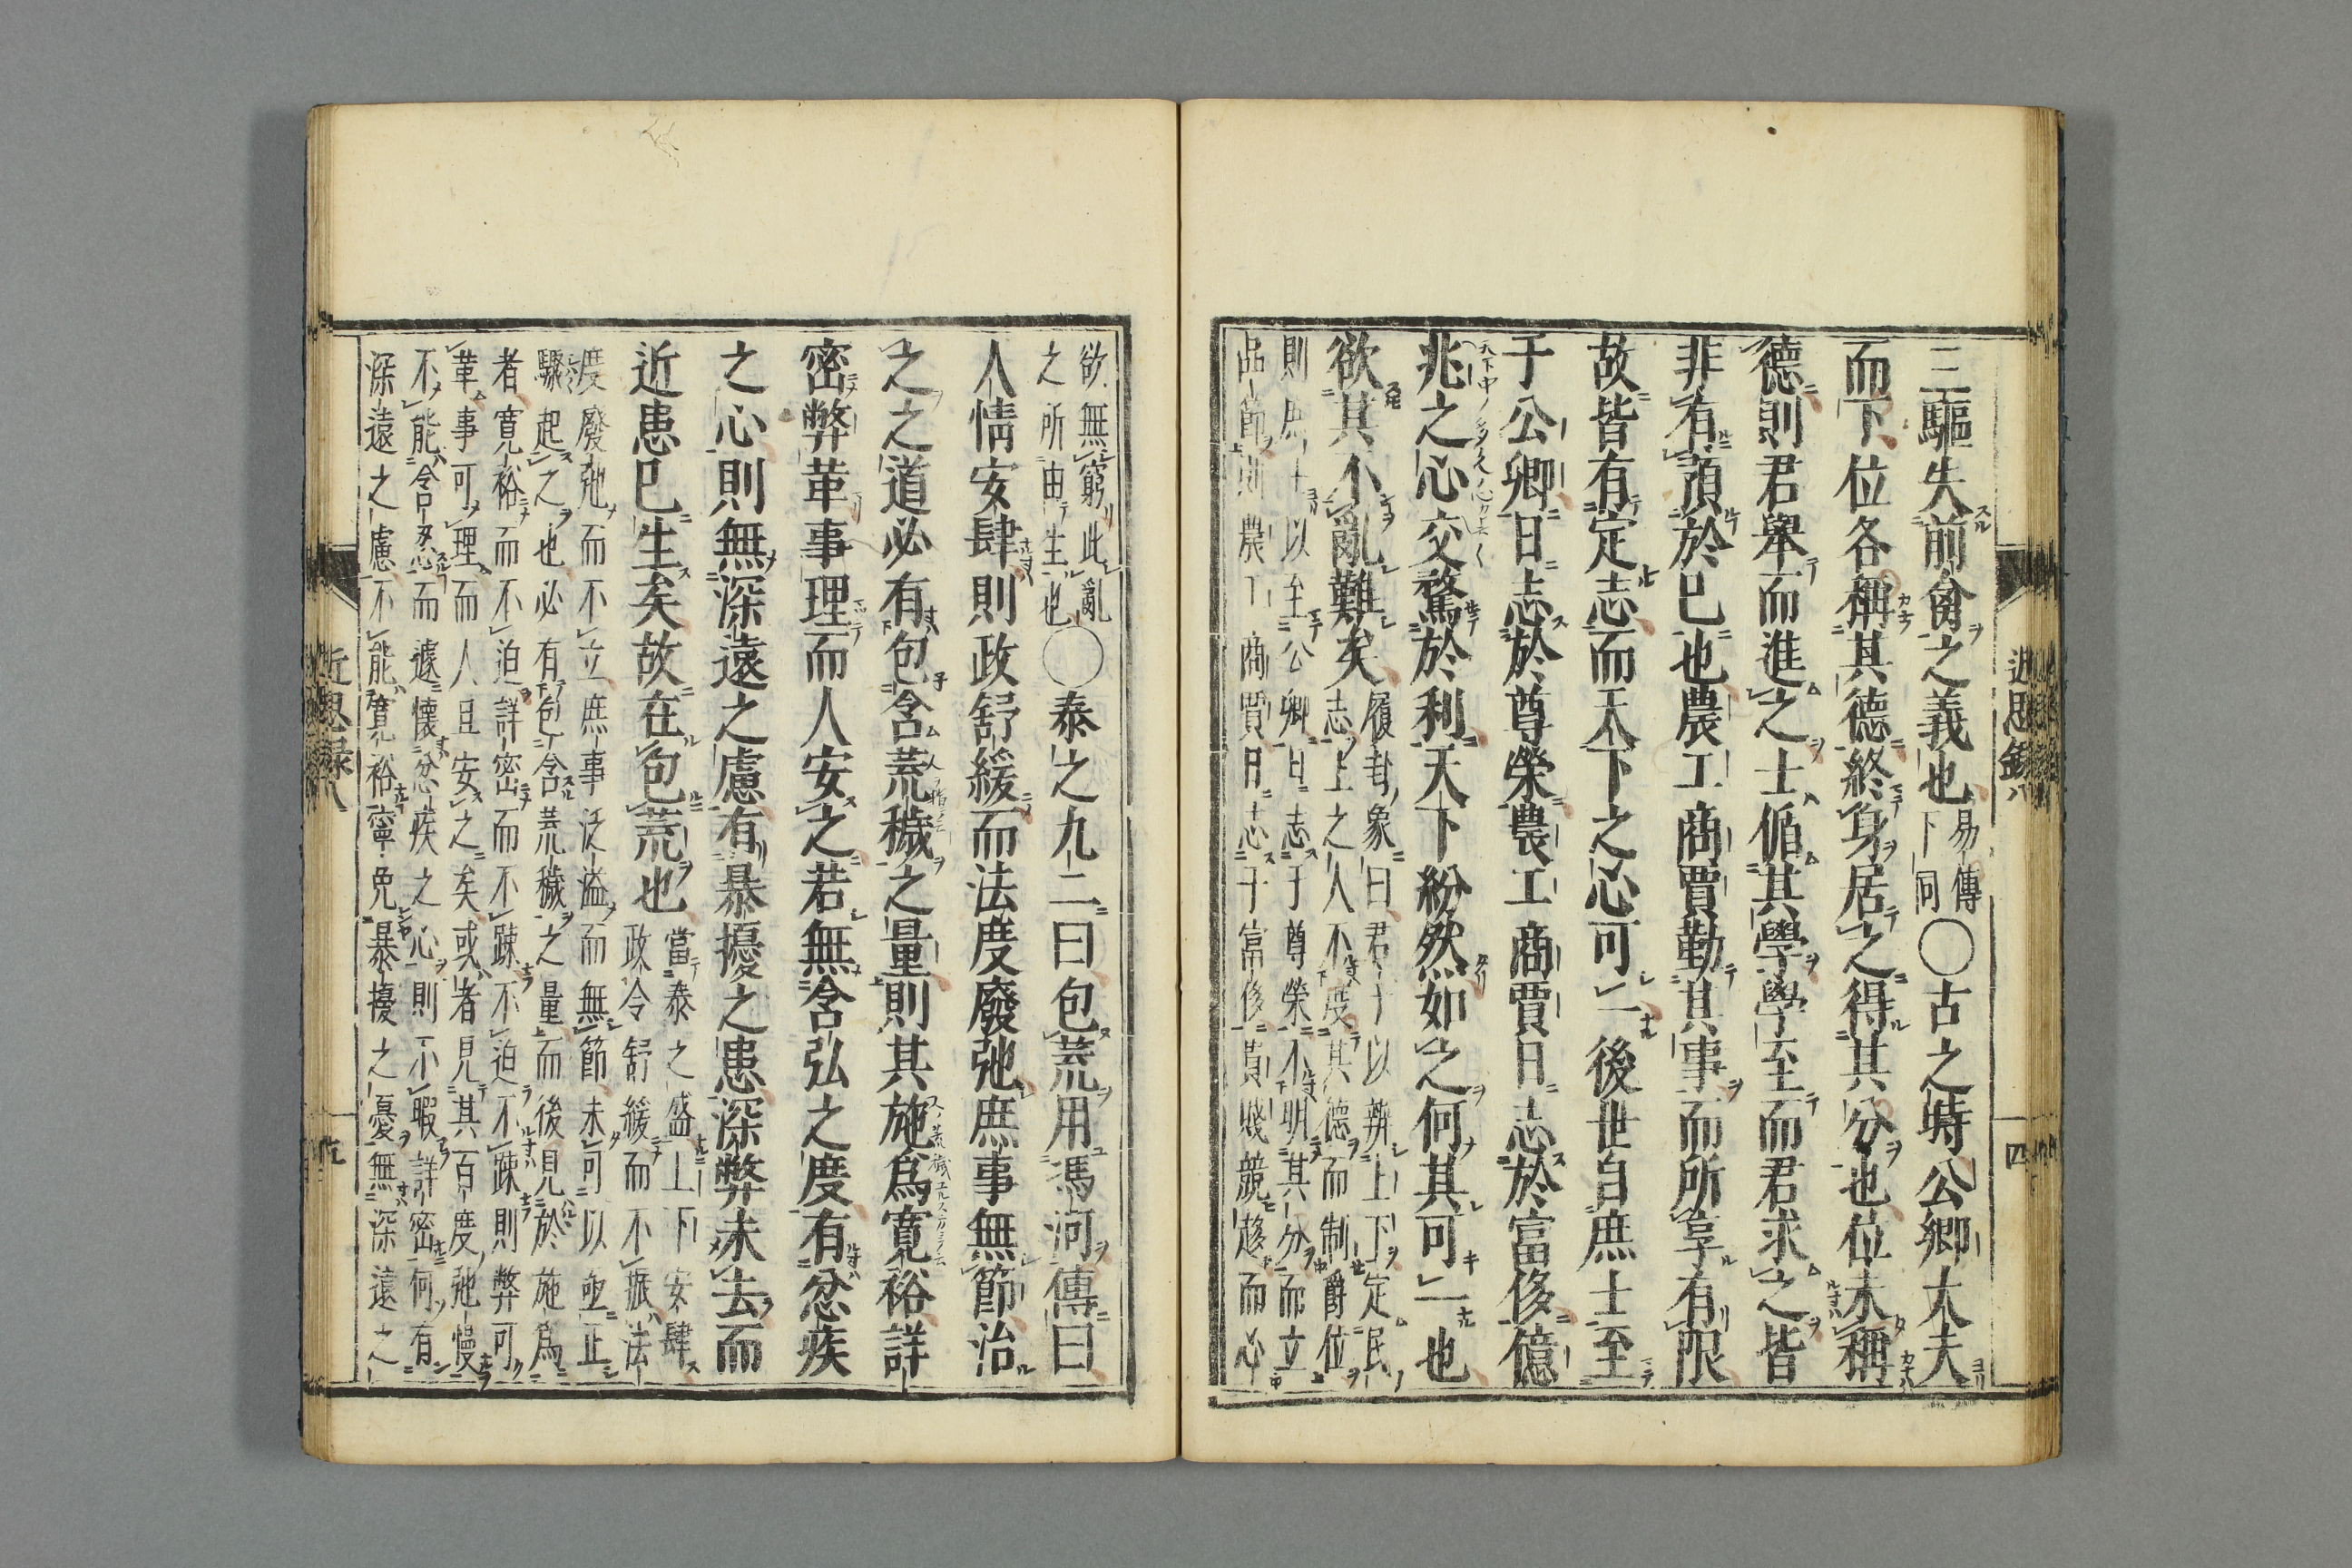 三驅失前禽之義也易傳下同〇古之時公卿大夫
而下位各稱其德終身居之得其分也位未稱
德則君舉而進之士脩其學學至而君求之皆
非有預於己也農工商賈勤其事而所享有限
故皆有定志而天下之心可一後世自庶士至
于公卿日志於尊榮農工商賈日志於富侈億
兆之心交騖於利天下紛然如之何其可一也
欲其不亂難矣
履卦象曰君子以辨上下定民
志上之人不度其德而制爵位
則庶士以至公卿日志于尊榮不明其分而立
品節則農工商賈日志于富侈貴賤競趍而心
近思錄八
四
欲無窮此亂
之所由生也
〇泰之九二曰包荒用馮河傳曰
人情安肆則政舒緩而法度廢弛庶事無節治
之之道必有包含荒穢之量則其施爲寬裕詳
密弊革事理而人安之若無含弘之度有忿疾
之心則無深遠之慮有暴擾之患深弊未去而
近患已生矣故在包荒也
當泰之盛上下安肆
政令舒緩而不振法
度廢弛而不立庶事泛溢而無節未可以亟正
驟起之也必有包含荒穢之量而後見於施爲
者寬裕而不迫詳密而不踈不迫不踈則弊可
革事可理而人且安之矣或者見其百度弛慢
不能含忍而遽懷忿疾之心則不暇詳密何有
深遠之慮不能寬裕寧免暴擾之憂無深遠之
近思錄八